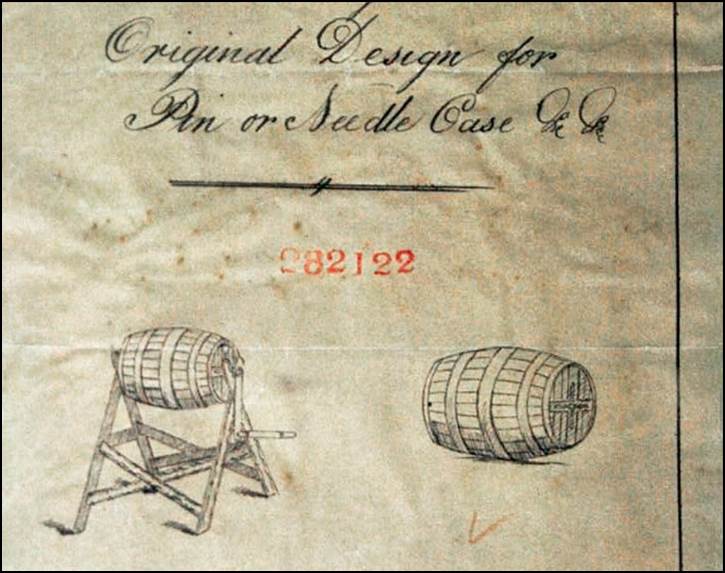 Original Design for
Pin or Needle Case &c &c
282122